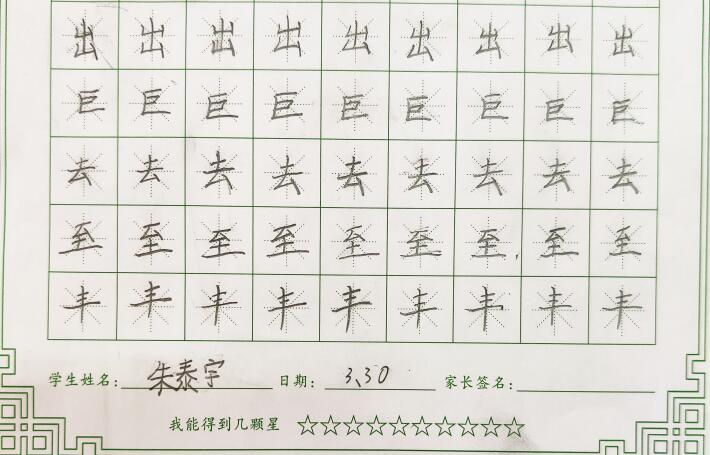 出出出出出出出出出
巨巨巨巨巨巨巨巨巨
去去去去去去去去去
至至至至至至至至至
丰丰丰丰丰丰丰丰丰
学生姓名：朱泰宇 日期：3、30 家长签名：
我能得到几颗星 ☆☆☆☆☆☆☆☆☆☆